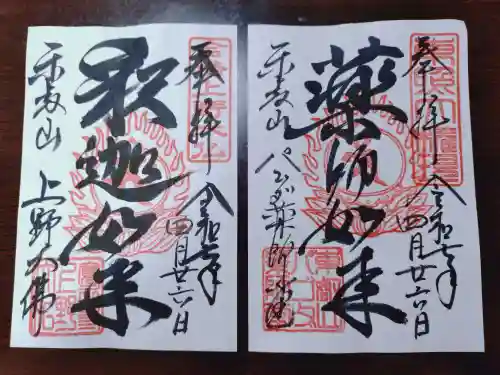 奉拝
令和七年
四月廿六日
薬師如来
東叡山
パゴダ薬師
奉拝
令和七年
四月廿六日
釈迦如来
東叡山
上野大佛